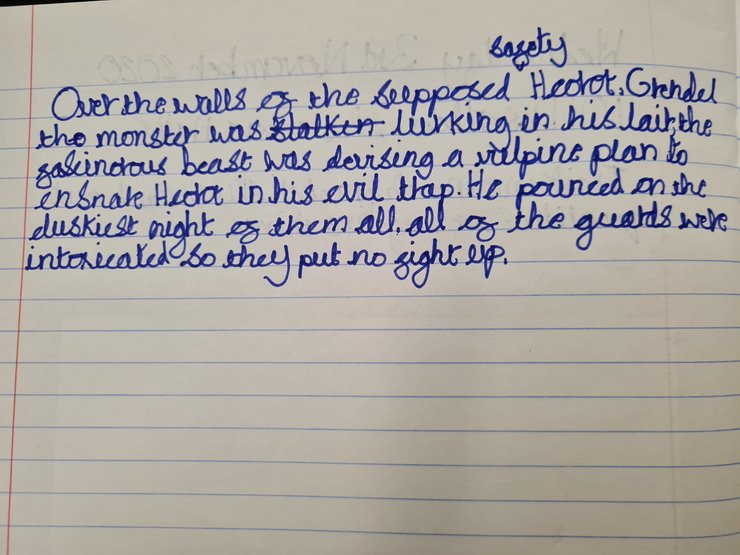 safety
Over the walls of the supposed Heorot. Grendel
the monster was stalken lurking in his lair, the
facinorous beast was devising a vulpine plan to
ensnare Heorot in his evil trap. He pounced on the
duskiest night of them all, all of the guards were
intoxicated so they put no fight up.